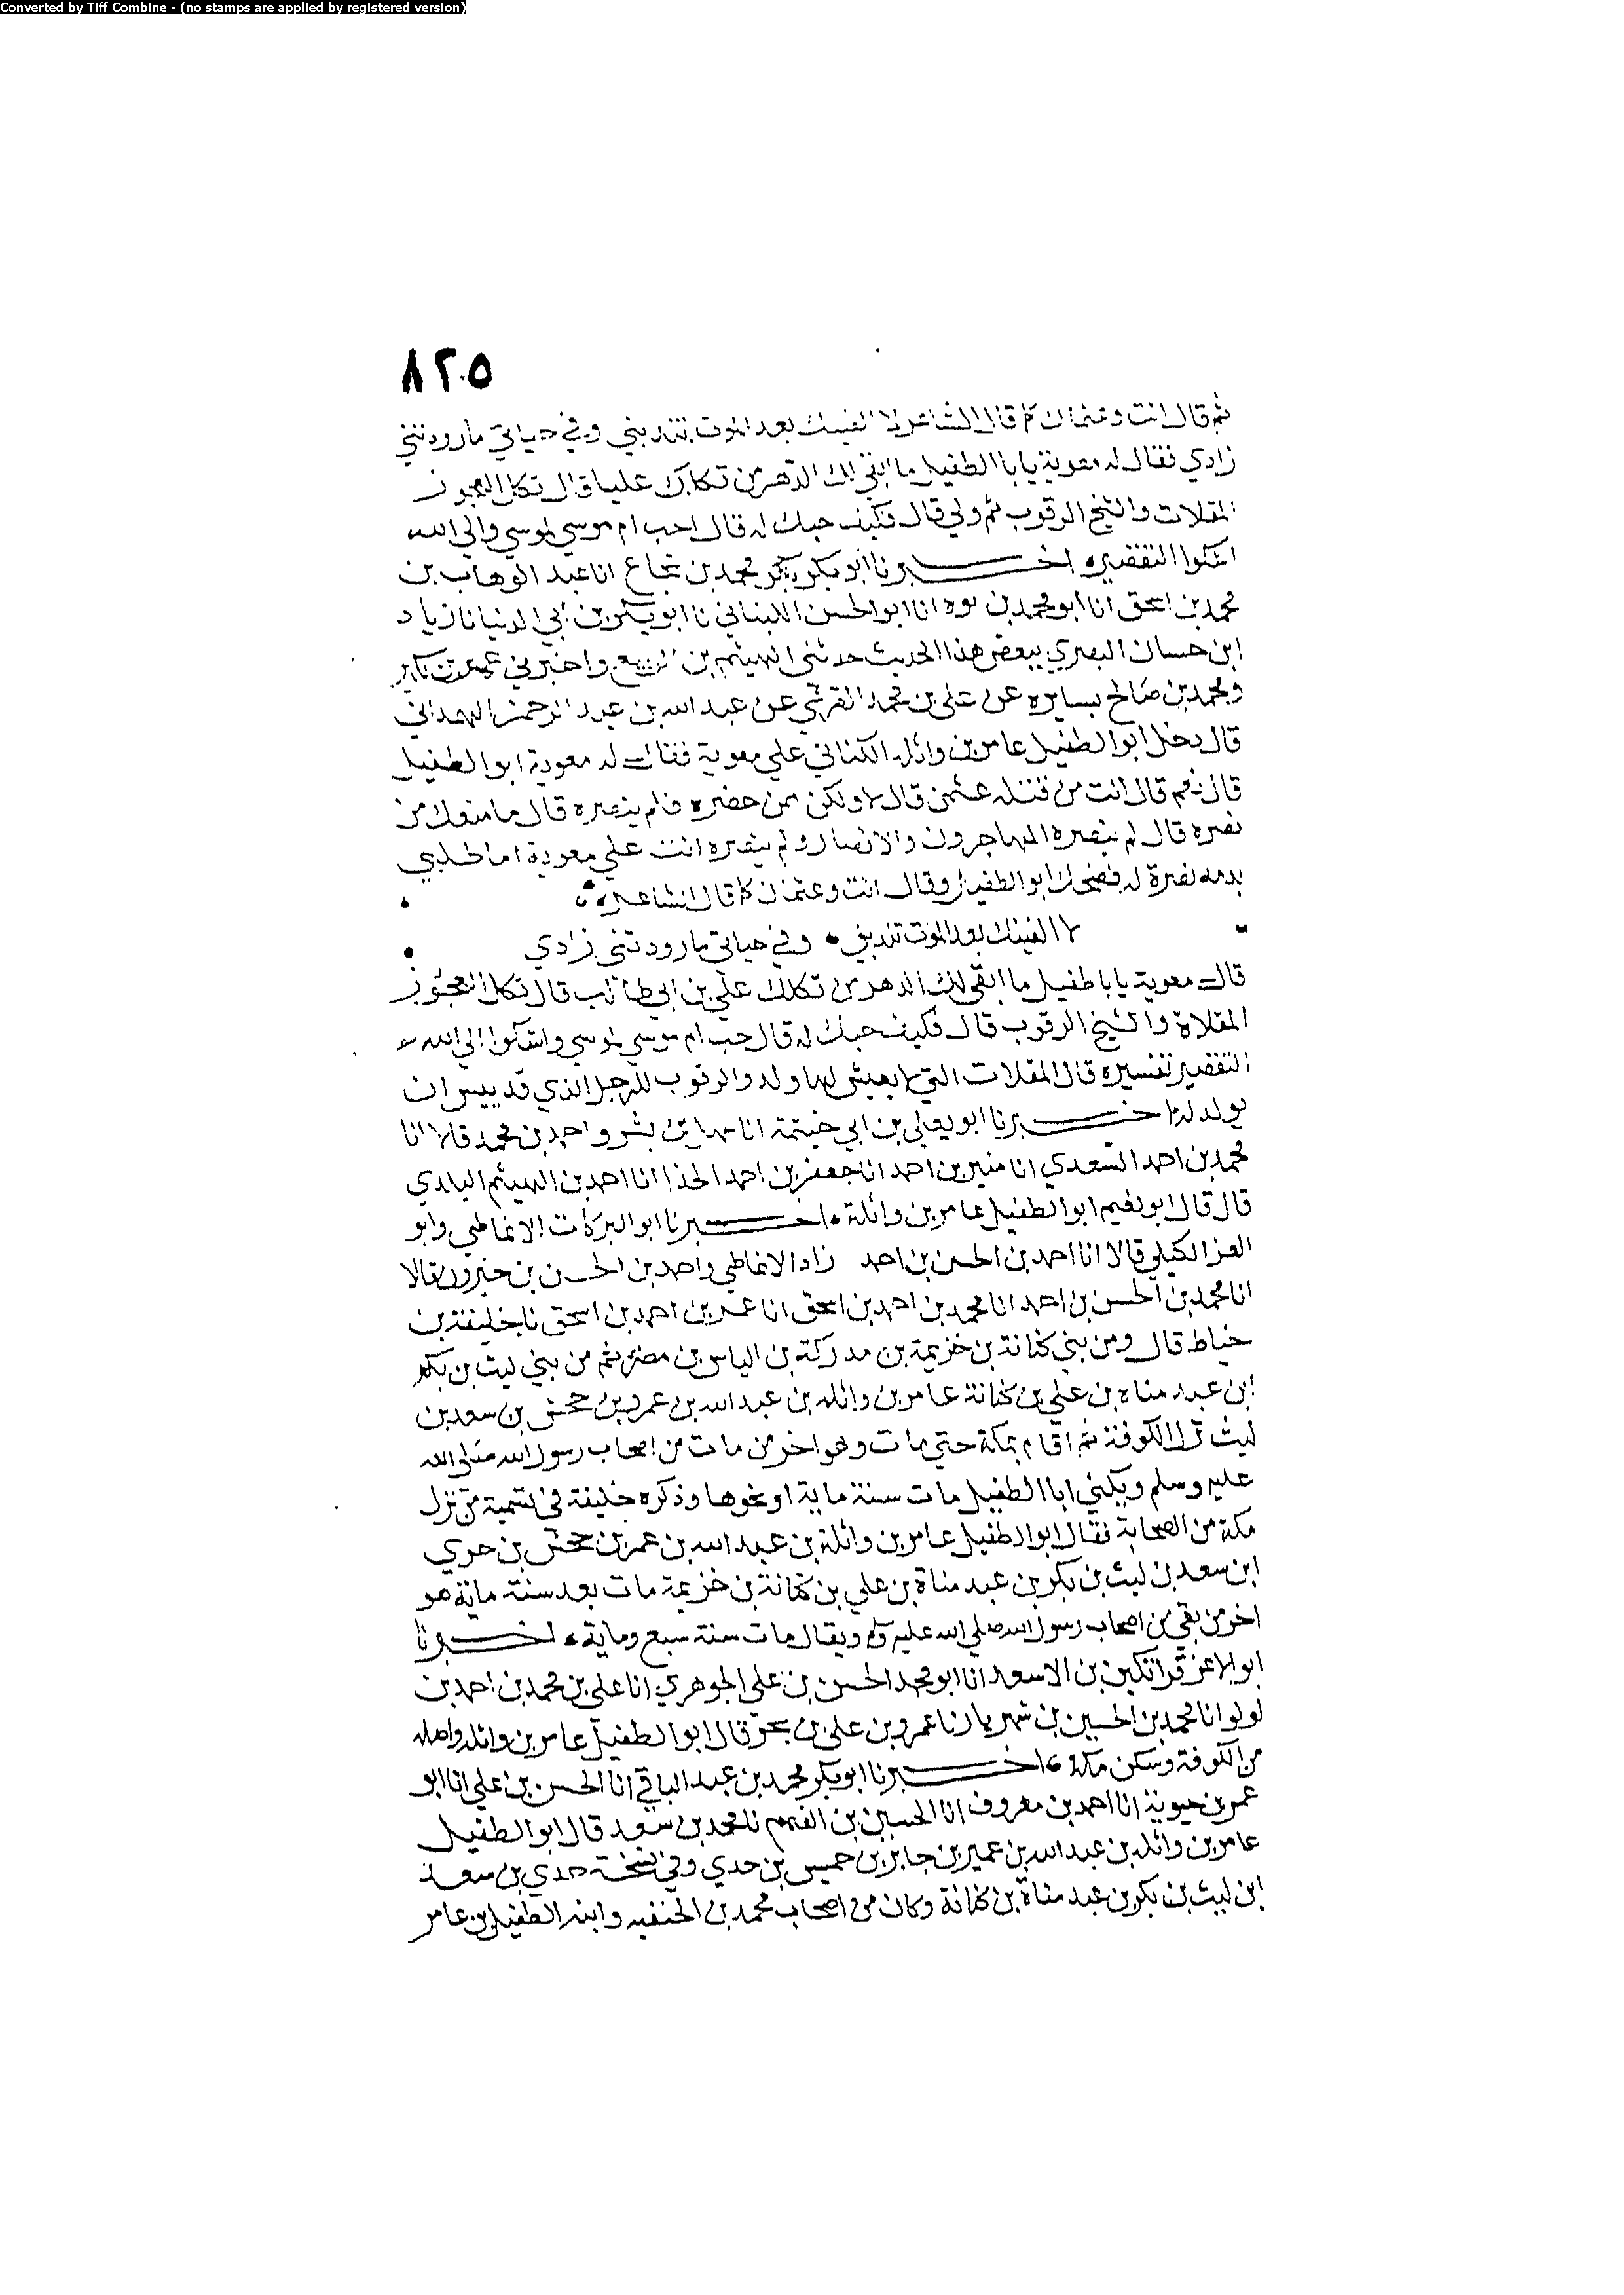 Converted by Tiff Combine - (no stamps are applied by registered version)
٨٢٥
ثم قال انت وعثمان كما قال الشاعر لا الفينك بعد الموت تندبني وفي حياتي ما زودتني
زادي فقال له معوية يا با الطفيل ما ابقى لك الدهر من ثكلك عليا قال ثكل العجوز
المقلات والشيخ الرقوب ثم ولي قال فكيف حبك له قال حب ام موسي لموسي والي الله
اشكوا التقصير اخبرنا ابو بكر محمد بن شجاع انا عبد الوهاب بن
محمد بن اسحق انا ابو محمد بن يوه انا ابو الحسن اللبناني نا ابو بكر بن ابي الدنيا نا زياد
ابن حسان البصري ببعض هذا الحديث حدثني الهيثم بن الربيع واخبرني عمر بن بكير
ومحمد بن صالح بسايره عن علي بن محمد القرشي عن عبد الله بن عبد الرحمن الهمداني
قال دخل ابو الطفيل عامر بن واثله الكناني علي معوية فقال له معوية ابو الطفيل
قال نعم قال انت من قتله عثمن قال لا ولكن ممن حضره فلم ينصره قال ما منعك من
نصره قال لم ينصره المهاجرون والانصار ولم ينصره انت علي معوية اما طلبي
بدمه نصرة له فضحك ابو الطفيل وقال انت وعثمان كما قال الشاعر
لا الفينك بعد الموت تندبني وفي حياتي ما زودتني زادي
قال معوية يا با طفيل ما ابقي لك الدهر من ثكلك علي بن ابي طالب قال ثكل العجوز
المقلاة والشيخ الرقوب قال فكيف حبك له قال حب ام موسي لموسي واشكوا الي الله
التقصير تفسيره قال المقلات التي لا يعيش لها ولد والرقوب للرجل الذي قد ييس ان
يولد له اخبرنا ابو يعلي بن ابي خيثمة انا سهل بن بشر واحمد بن محمد قالا انا
محمد بن احمد السعدي انا منير بن احمد انا جعفر بن احمد الحذا انا احمد بن الهيثم البلدي
قال قال ابو نعيم ابو الطفيل عامر بن واثلة اخبرنا ابو البركات الانماطي وابو
العز الكيلي قالا انا احمد بن الحسن بن احمد زاد الانماطي واحمد بن الحسن بن خيرون قالا
انا محمد بن الحسن بن احمد انا محمد بن احمد بن اسحق انا عمر بن احمد بن اسحق نا خليفة بن
خياط قال ومن بني كنانة بن خزيمة بن مدركة بن الياس بن مضر ثم من بني ليث بن بكر
ابن عبد مناه بن علي بن كنانة عامر بن واثله بن عبد الله بن عمرو بن جحش بن سعد بن
ليث نزل الكوفة ثم اقام بمكة حتي مات وهو اخر من مات من اصحاب رسول الله صلي الله
عليه وسلم ويكني ابا الطفيل مات سنة ماية او نحوها وذكره خليفة في تسمية من نزل
مكة من الصحابة فقال ابو الطفيل عامر بن واثلة بن عبد الله بن عمر بن جحش بن حري
ابن سعد بن ليث بن بكر بن عبد مناة بن علي بن كنانة بن خزيمة مات بعد سنة ماية هو
اخر من بقي من اصحاب رسول الله صلي الله عليه وسلم ويقال مات سنة سبع وماية اخبرنا
ابو الاعز قراتكين بن الاسعد انا ابو محمد الحسن بن علي الجوهري انا علي بن محمد بن احمد بن
لولو انا محمد بن الحسين بن شهريار نا عمرو بن علي بن بحر قال ابو الطفيل عامر بن واثله واصله
من الكوفة وسكن مكة اخبرنا ابو بكر محمد بن عبد الباقي انا الحسن بن علي انا ابو
عمر بن حيوية انا احمد بن معروف انا الحسين بن الفهم نا محمد بن سعد قال ابو الطفيل
عامر بن واثله بن عبد الله بن عمير بن جابر بن حميس بن حدي وفي نسخة جدي بن سعد
ابن ليث بن بكر بن عبد مناة بن كنانة وكان من اصحاب محمد بن الحنفيه وابنه الطفيل بن عامر